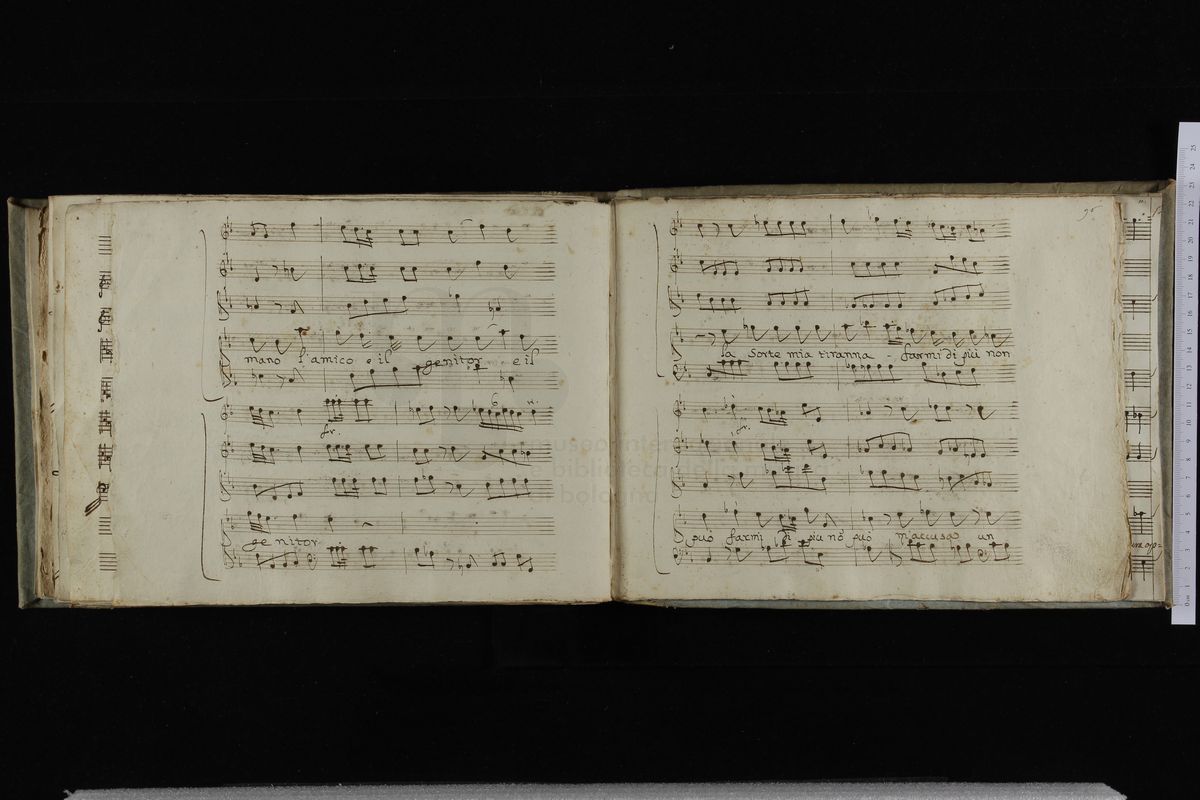 mano l'amico e il genitor e il
for.
genitor
95
la sorte mia tiranna farmi di più non
for.
può farmi di più nō può m'accusa un
museo internazionale
e biblioteca della musica
di bologna